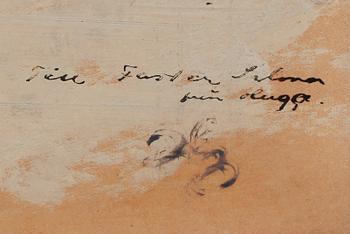 Till Faster Selma
från Hugge.